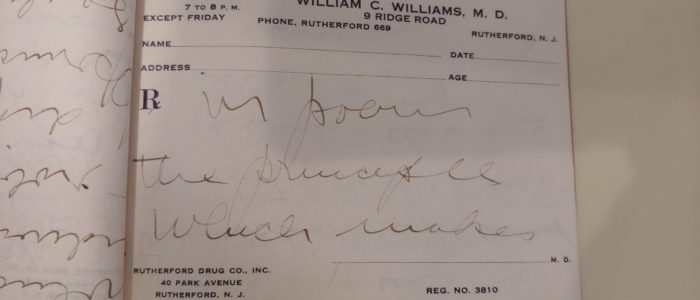 7 TO 8 P. M.
EXCEPT FRIDAY
WILLIAM C. WILLIAMS, M. D.
9 RIDGE ROAD
PHONE, RUTHERFORD 669
RUTHERFORD, N. J.
NAME
DATE
ADDRESS
AGE
R in poem
the principle
which makes
M. D.
RUTHERFORD DRUG CO., INC.
40 PARK AVENUE
RUTHERFORD, N. J.
REG. NO. 3810